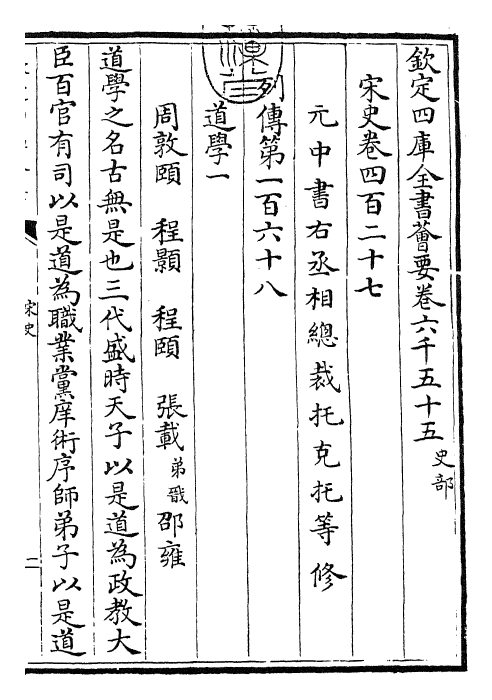 欽定四庫全書薈要卷六千五十五 史部
宋史卷四百二十七
元中書右丞相總裁托克托等修
列傳第一百六十八
道學一
周敦頤 程顥 程頤 張載 弟戩 邵雍
道學之名古無是也三代盛時天子以是道為政教大
臣百官有司以是道為職業黨庠術序師弟子以是道
宋史